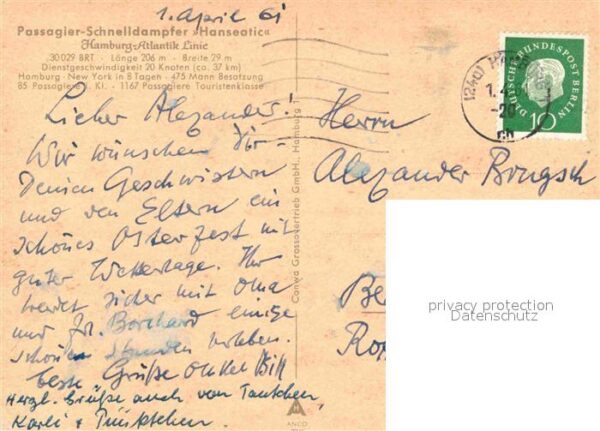 1. April 61
Passagier-Schnelldampfer »Hanseatic«
Hamburg-Atlantik Linie
30 029 BRT · Länge 206 m · Breite 29 m
Dienstgeschwindigkeit 20 Knoten (ca. 37 km)
Hamburg - New York in 8 Tagen · 475 Mann Besatzung
85 Passagiere I. Kl. · 1167 Passagiere Touristenklasse
Lieber Alexander!
Wir wünschen Dir –
Deinen Geschwistern
und den Eltern ein
schönes Osterfest mit
guter Wetterlage. Ihr
werdet sicher mit Oma
und Fr. Borchard einige
schöne Stunden erleben.
beste Grüße Onkel Bill
Herzl. Grüße auch von Tantchen
Karli + Pünktchen.
Conwa Grossovertrieb GmbH., Hamburg 1
ANCO
DEUTSCHE BUNDESPOST BERLIN
10
Herrn
Alexander Bongsch
Be
Ro
privacy protection
Datenschutz